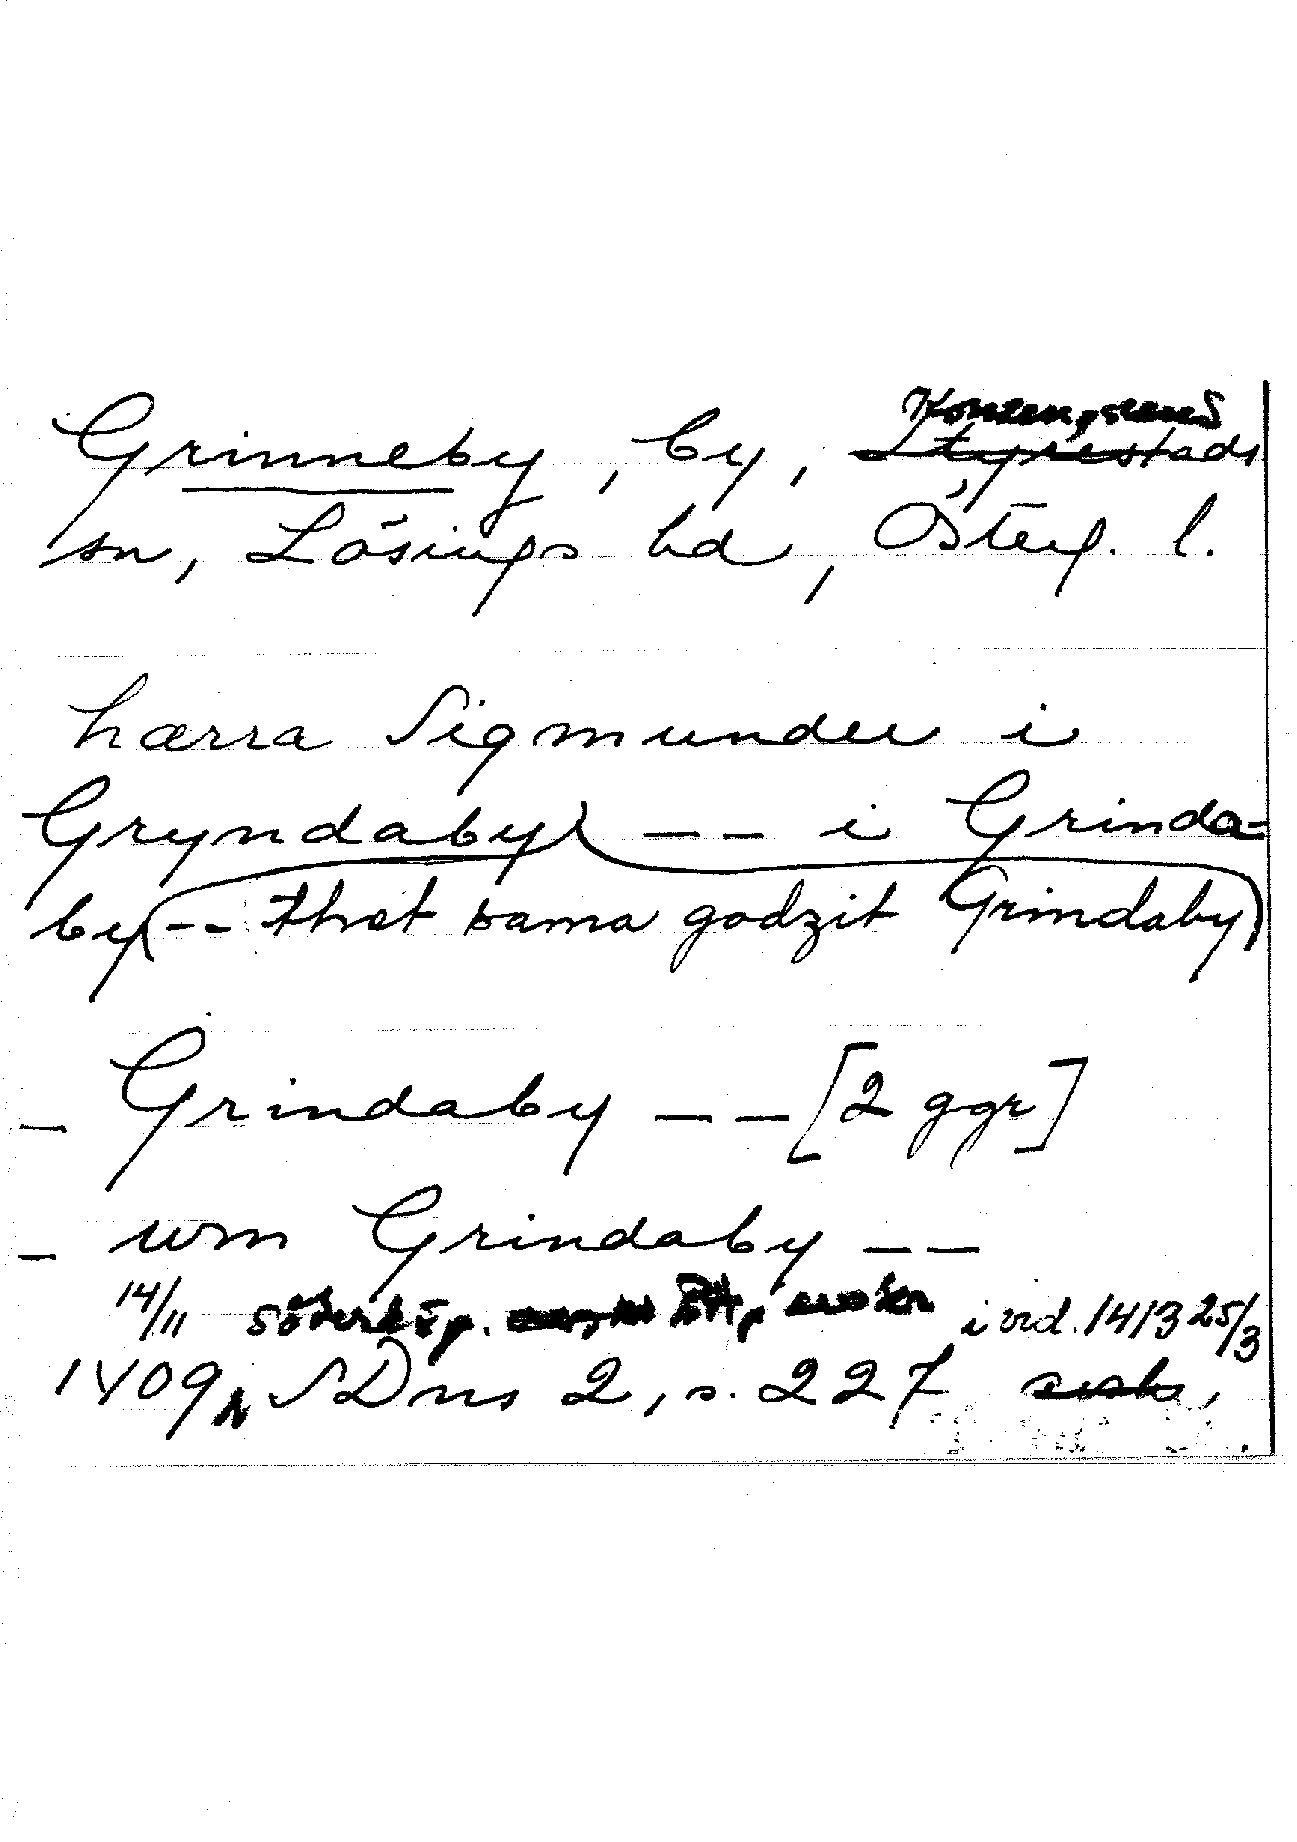 Grinneby, by, Styrestads
sn, Lösings hd, Österg. l.
hærra Sigmunder i
Gryndaby -- i Grinda-
by -- thet sama godzit Grindaby
- Grindaby -- [2 ggr]
- um Grindaby --
14/11 Söderköp. i vid. 1413 25/3
1409 SDns 2, s. 227